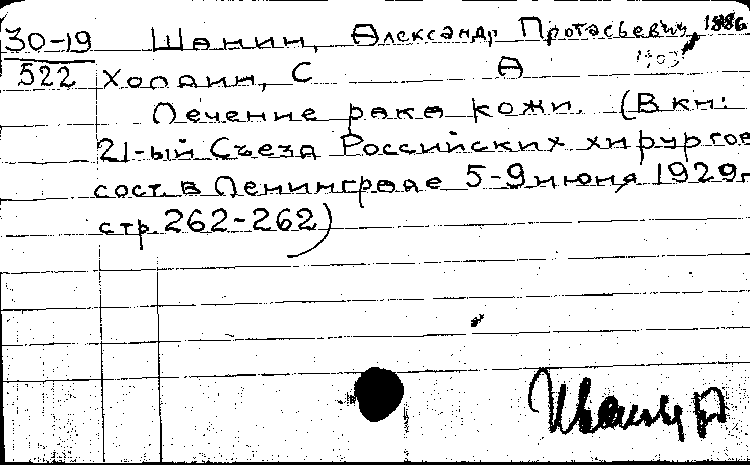 30-19 Шанин, Александр Протасьевич, 1886
522 Холдин, С А
Лечение рака кожи. (В кн:
21-ый Съезд Российских хирургов
сост. в Ленинграде 5-9 июня 1929г.
стр. 262-262)